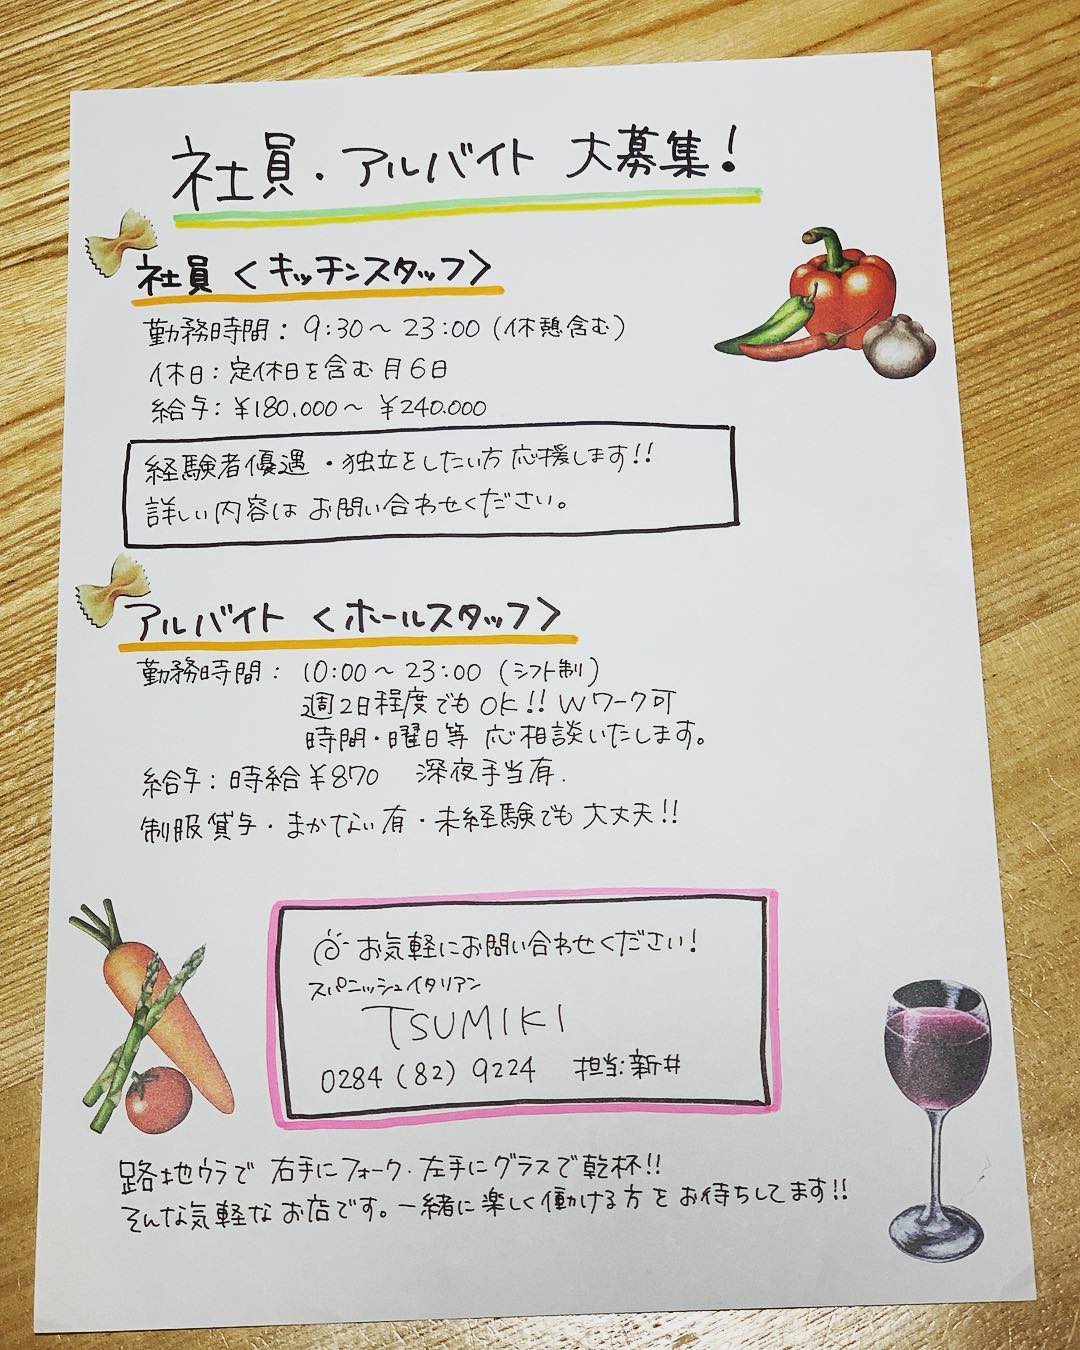 社員・アルバイト 大募集!
社員〈キッチンスタッフ〉
勤務時間: 9:30〜23:00(休憩含む)
休日:定休日を含む月6日
給与:¥180,000〜¥240,000
経験者優遇・独立をしたい方応援します!!
詳しい内容はお問い合わせください。
アルバイト〈ホールスタッフ〉
勤務時間: 10:00〜23:00(シフト制)
週2日程度でもOK!! Wワーク可
時間・曜日等 応相談いたします。
給与:時給¥870 深夜手当有.
制服貸与・まかない有・未経験でも大丈夫!!
お気軽にお問い合わせください!
スパニッシュイタリアン
TSUMIKI
0284(82)9224 担当:新井
路地ウラで 右手にフォーク・左手にグラスで乾杯!!
そんな気軽なお店です。一緒に楽しく働ける方をお待ちしてます!!